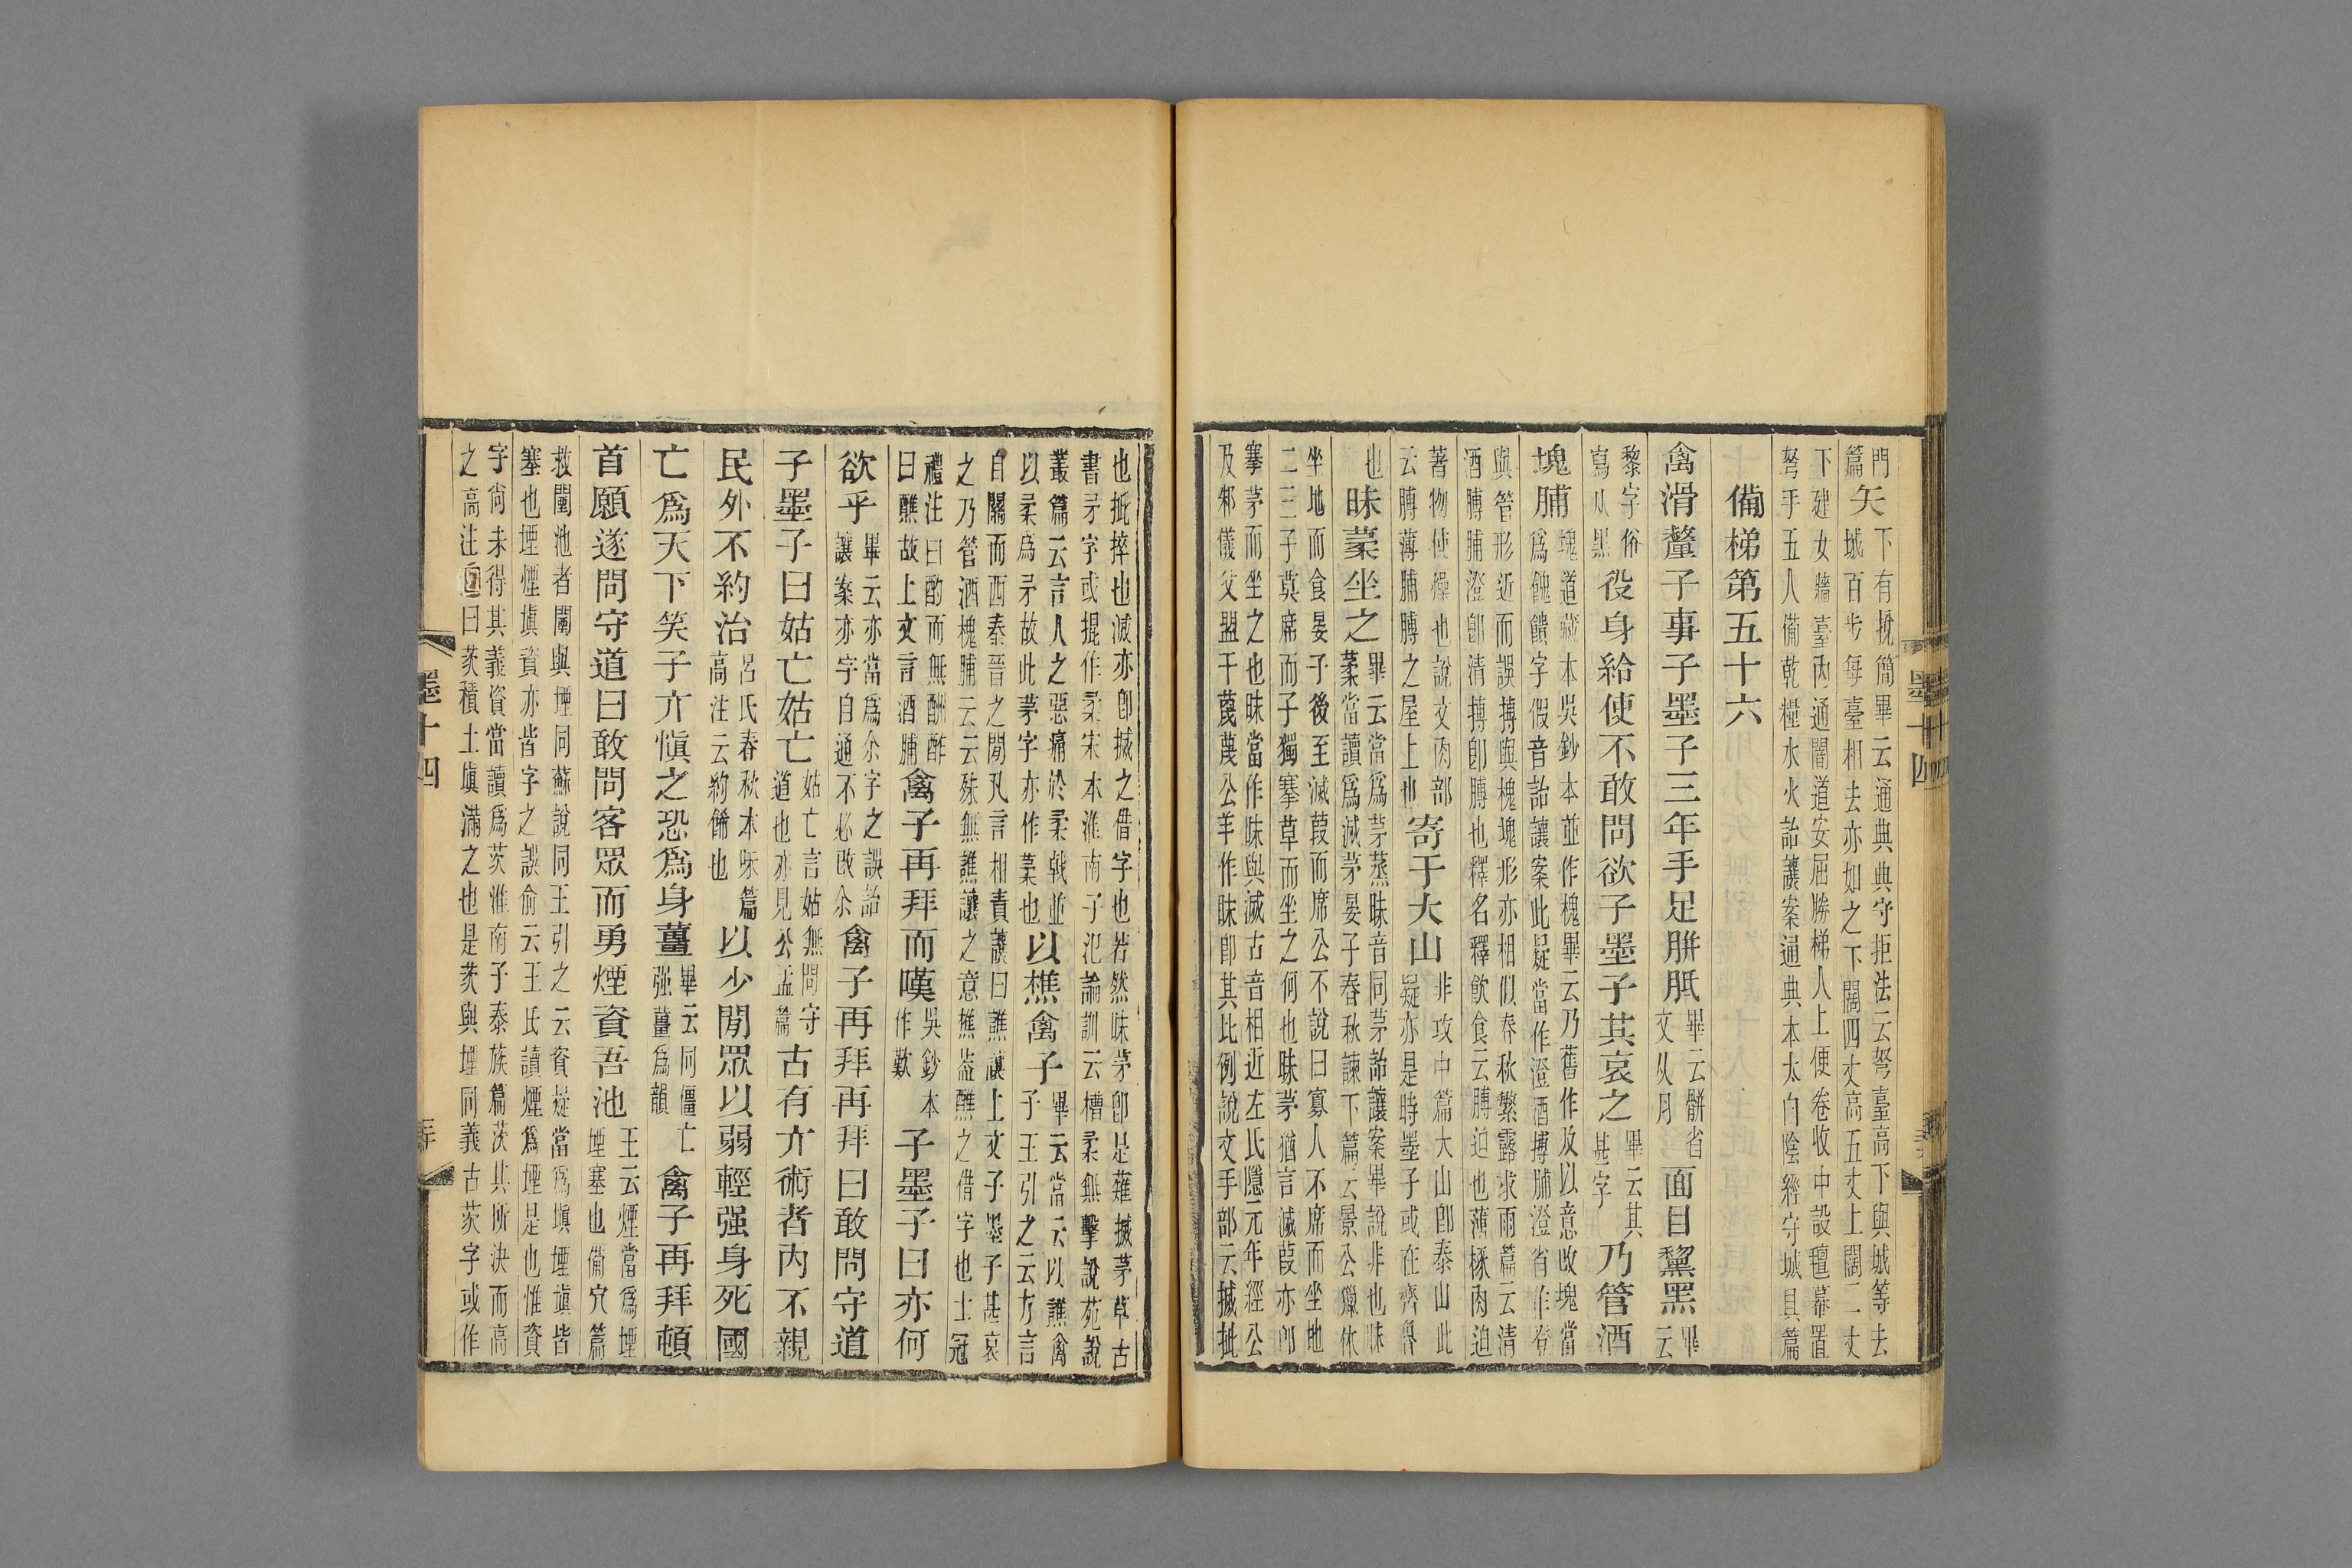 門篇矢下有挩簡畢云通典典守拒法云弩臺高下與城等去城百步每臺相去亦如之下闊四丈高五丈上闊二丈
下建女牆臺內通闇道安屈勝梯人上便卷收中設氊幕置弩手五人備乾糧水火詒讓案通典本太白陰經守城具篇
備梯第五十六
禽滑釐子事子墨子三年手足胼胝畢云骿省文从月面目黧黑畢云
黎字俗寫从黑役身給使不敢問欲子墨子其哀之畢云其甚字乃管酒
塊脯塊道藏本吳鈔本並作槐畢云乃舊作及以意改塊當爲餽饋字假音詒讓案此疑當作澄酒搏脯澄省作登
與管形近而誤搏與槐塊形亦相似春秋繁露求雨篇云清酒膊脯澄卽清搏卽膊也釋名釋飮食云膊迫也薄椓肉迫
著物使燥也說文肉部云膊薄脯膊之屋上也寄于大山非攻中篇大山卽泰山此疑亦是時墨子或在齊魯
也昧葇坐之畢云當爲茅蒸昧音同茅詒讓案畢說非也昧葇當讀爲滅茅晏子春秋諫下篇云景公獵休
坐地而食晏子後至滅葭而席公不說曰寡人不席而坐地二三子莫席而子獨搴草而坐之何也昧茅猶言滅葭亦卽
搴茅而坐之也昧當作眛與滅古音相近左氏隱元年經公及邾儀父盟于蔑蔑公羊作眛卽其比例說文手部云搣批
也批捽也滅亦卽搣之借字也若然眛茅卽是薙搣茅草古書矛字或掍作柔宋本淮南子氾論訓云槽柔無擊說苑說
叢篇云言人之惡痛於柔戟並以柔爲矛故此茅字亦作葇也以樵禽子畢云當云以譙禽子王引之云方言
自關而西秦晉之閒凡言相責讓曰譙讓上文子墨子甚哀之乃管酒槐脯云云殊無譙讓之意樵葢醮之借字也士冠
禮注曰酌而無酬酢曰醮故上文言酒脯禽子再拜而嘆吳鈔本作歎子墨子曰亦何
欲乎畢云亦當爲尒字之誤詒讓案亦字自通不必改尒禽子再拜再拜曰敢問守道
子墨子曰姑亡姑亡姑亡言姑無問守道也亦見公孟篇古有亣術者內不親
民外不約治呂氏春秋本味篇高注云約飾也以少閒眾以弱輕强身死國
亡爲天下笑子亣愼之恐爲身薑畢云同僵亡强薑爲韻禽子再拜頓
首願遂問守道曰敢問客眾而勇煙資吾池王云煙當爲堙堙塞也備穴篇
救闉池者闉與堙同蘇說同王引之云資疑當爲塡堙塡皆塞也堙煙塡資亦皆字之誤俞云王氏讀煙爲堙是也惟資
字尙未得其義資當讀爲茨淮南子泰族篇茨其所決而高之高注曰茨積土塡滿之也是茨與堙同義古茨字或作
墨十四